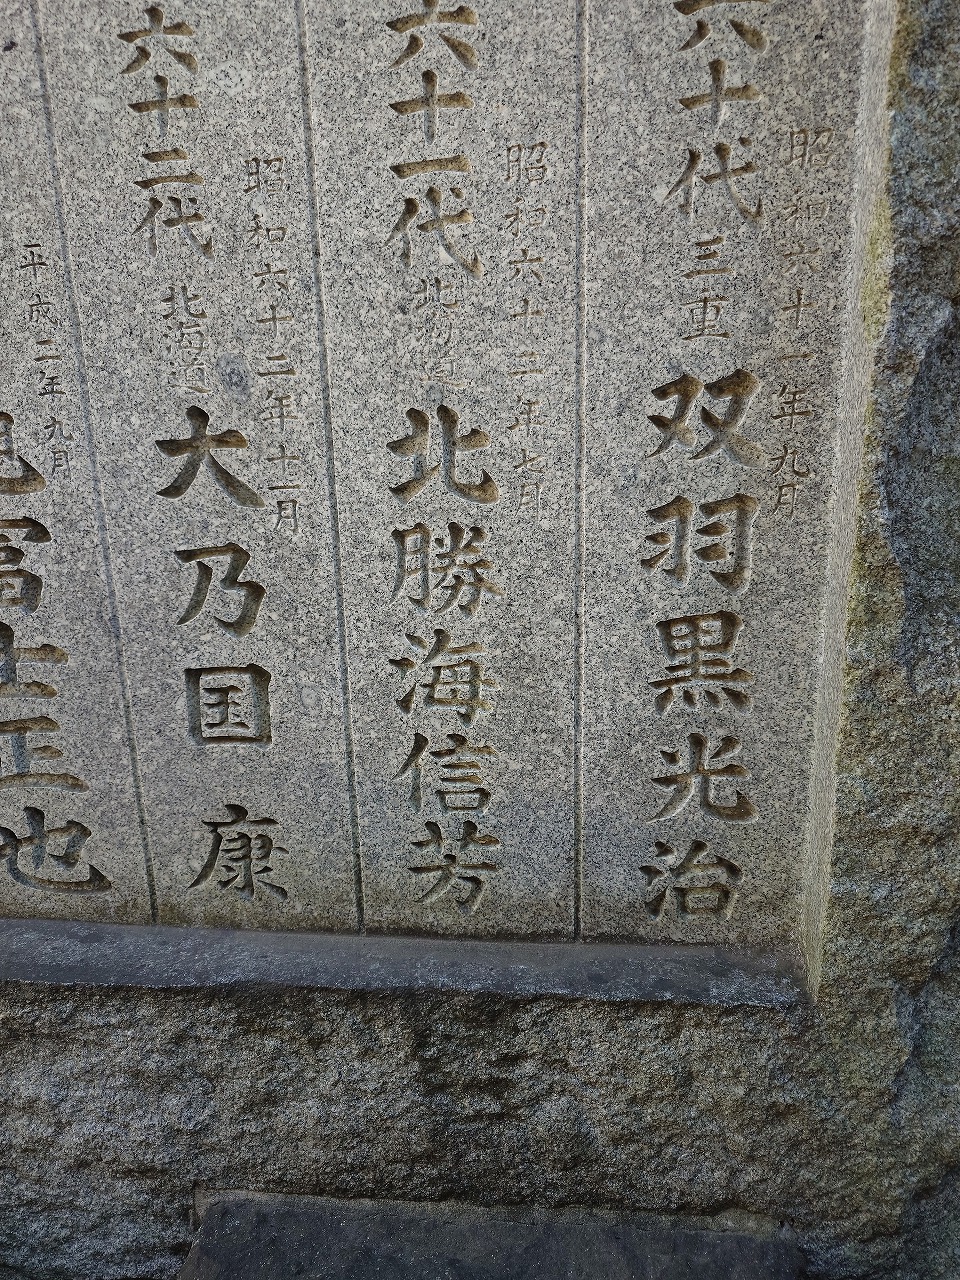 昭和六十一年九月
六十代 三重 双羽黒光治
昭和六十二年七月
六十一代 北海道 北勝海信芳
昭和六十二年十一月
六十二代 北海道 大乃国 康
平成二年九月
富士正也